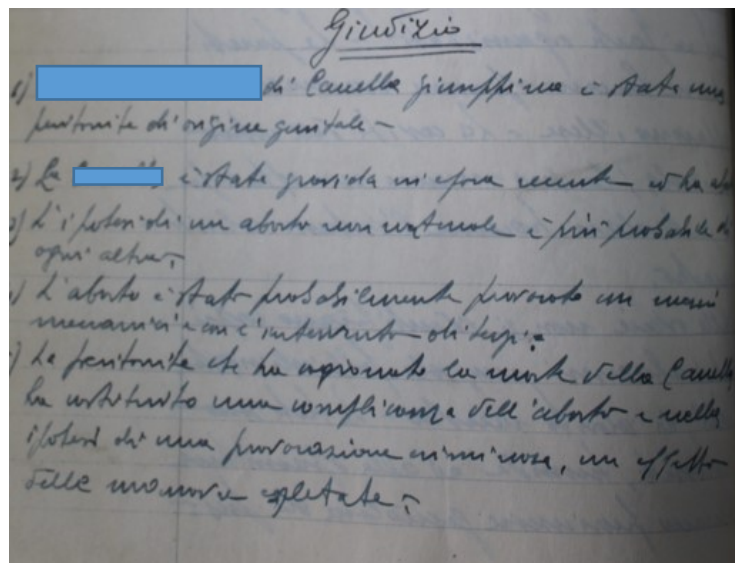 Giudizio
1) di Canella Giuseppina è stata una
peritonite di origine genitale -
2) La è stata gravida in epoca recente ed ha
3) L'ipotesi di un aborto non naturale è più probabile di
ogni altra; -
L'aborto è stato probabilmente provocato con mezzi
meccanici e con l'intervento di terzi; -
La peritonite che ha cagionato la morte della Canella
ha costituito una complicanza dell'aborto e nella
ipotesi di una provocazione criminosa, un effetto
delle manovre espletate; -